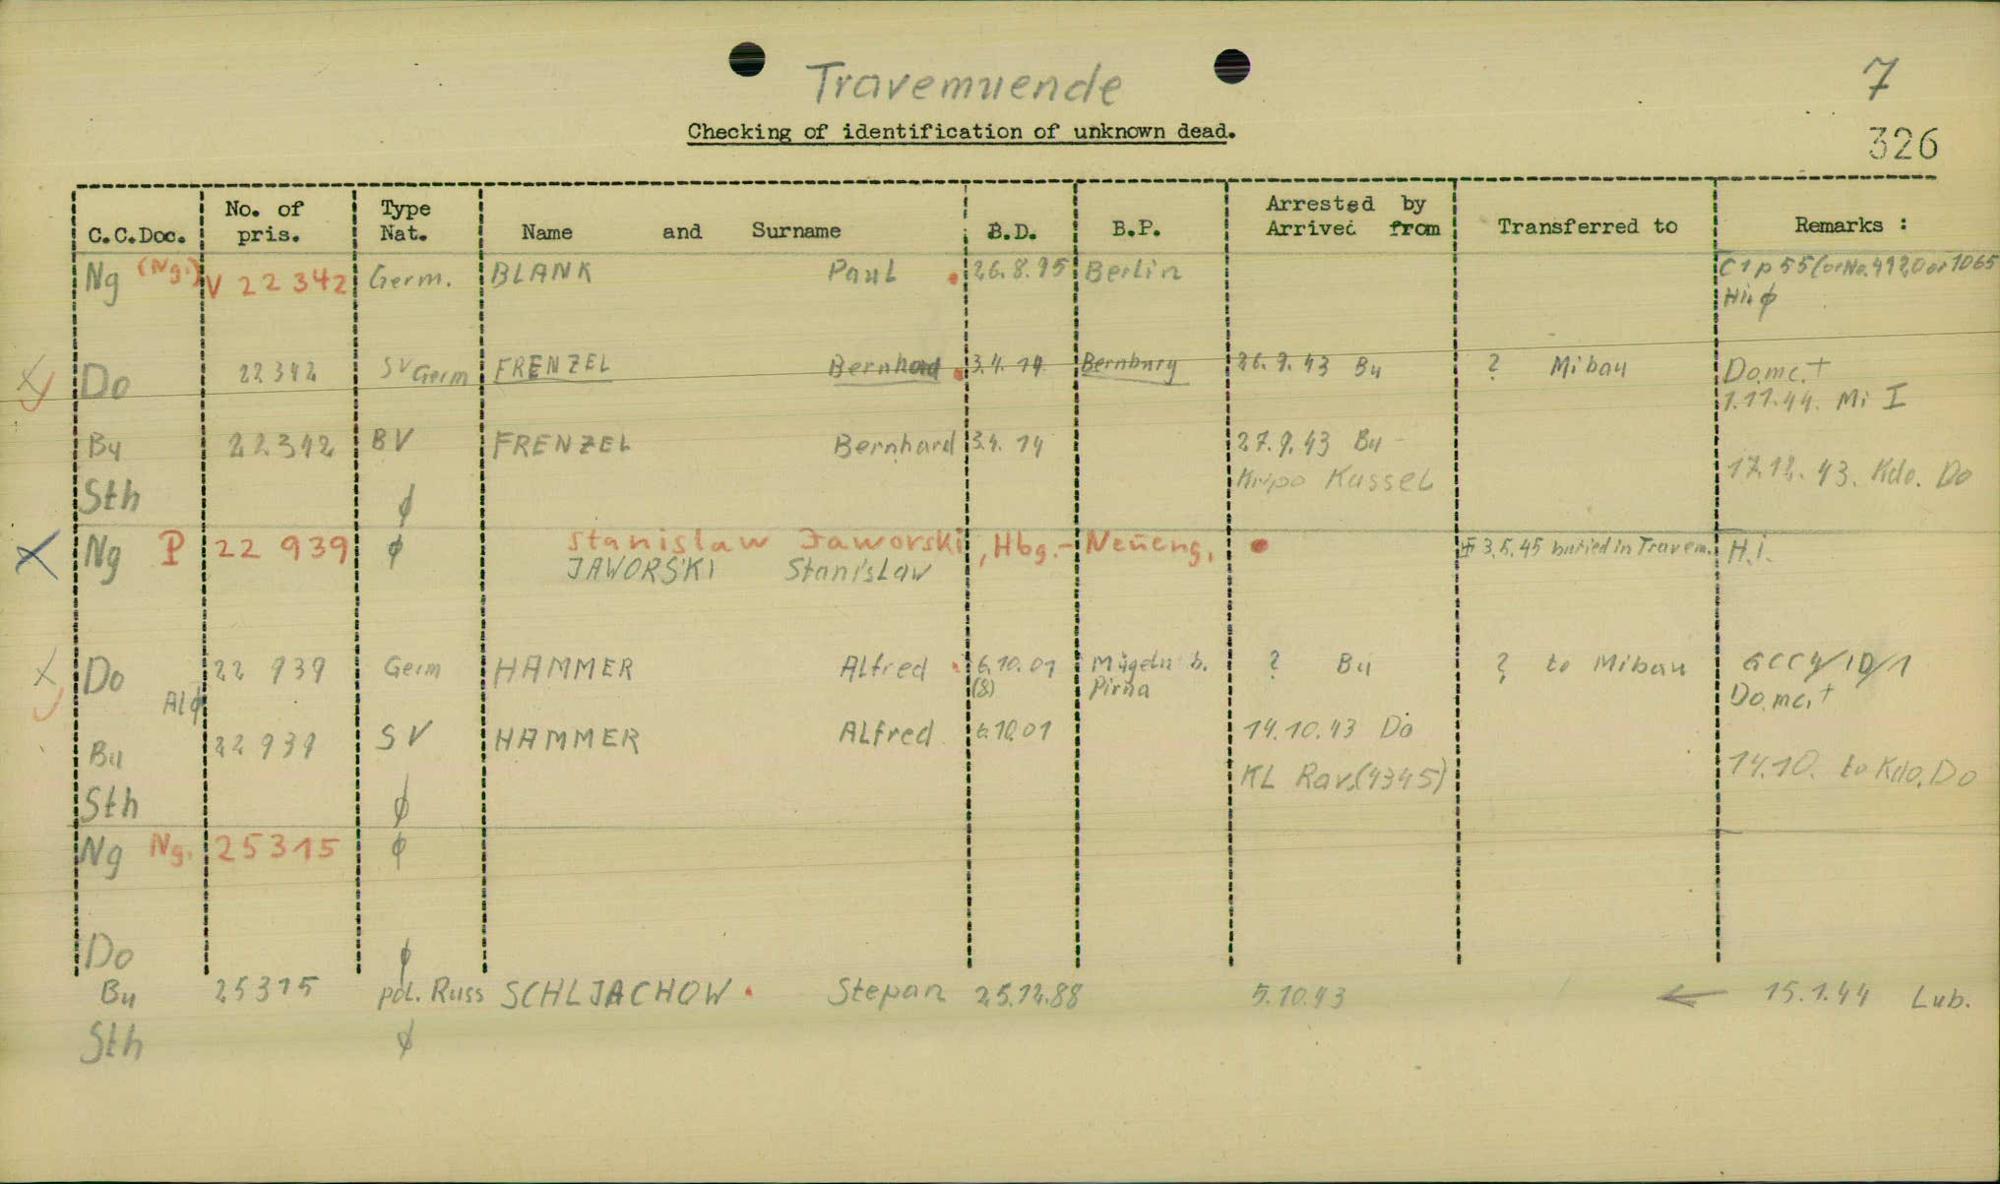 Travemuende
7
Checking of identification of unknown dead.
326
C.C.Doc. No. of pris. Type Nat. Name and Surname B.D. B.P. Arrested by Arrived from Transferred to Remarks :
Ng (Ng.) V 22342 Germ. BLANK Paul 26.8.95 Berlin C1p55 (or No. 4920 or 1065
Hi ϕ
Do 22342 SV Germ FRENZEL Bernhard 3.4.14 Bernburg 26.9.43 Bu ? Mibau Do.mc.+
1.11.44. Mi I
Bu 22342 BV FRENZEL Bernhard 3.4.14 27.9.43 Bu
Kripo Kassel 17.12.43. Kdo. Do
Sth ϕ
Ng P 22 939 ϕ Stanislaw Jaworski, Hbg.-Neueng. 3.5.45 buried in Travem. H.i.
JAWORSKI Stanislaw
Do 22 939 Germ HAMMER Alfred 6.10.01 Mügeln b. ? Bu ? to Mibau GCC4/ID/1
(8) Pirna Do.mc.+
Al ϕ
Bu 22939 SV HAMMER Alfred 6.10.01 14.10.43 Do
KL Rav.(4345) 14.10. to Kdo. Do
Sth ϕ
Ng Ng. 25315 ϕ
Do ϕ
Bu 25315 pol. Russ SCHLJACHOW Stepan 25.12.88 5.10.43 ← 15.1.44 Lub.
Sth ϕ